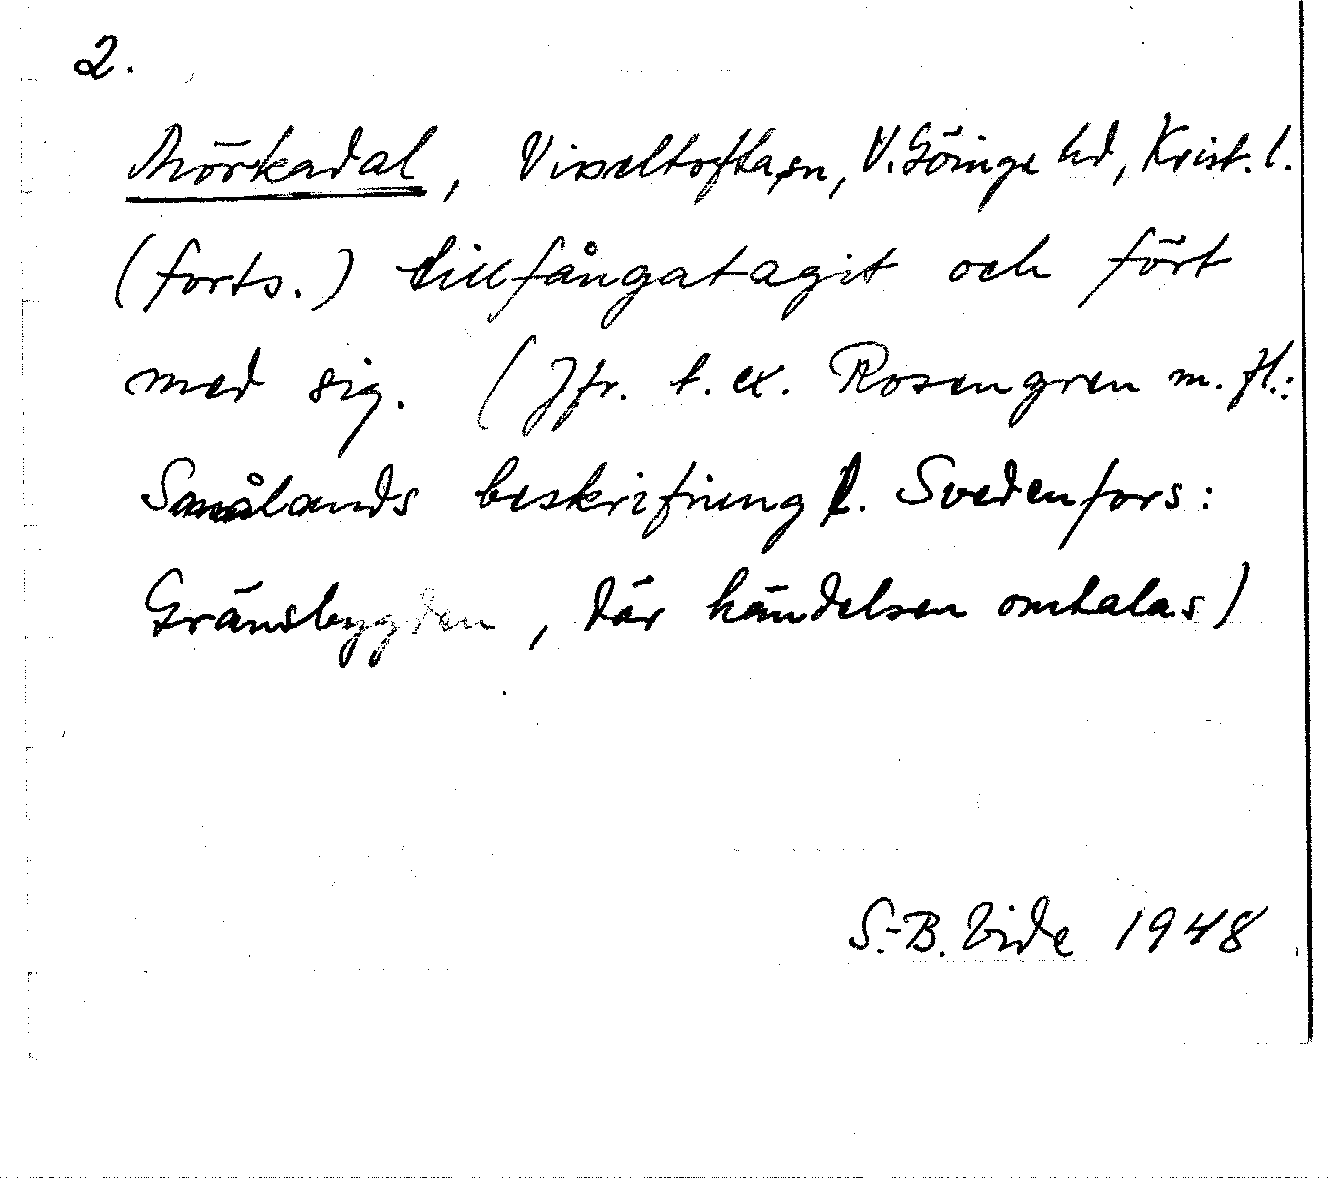 2.
Mörkadal, Visseltofta sn, V. Göinge hd, Krist. l.
(forts.) tillfångatagit och fört
med sig. (Jfr. t. ex. Rosengren m. fl.:
Smålands beskrifning l. Svedenfors:
Gränsbygden, där händelsen omtalas)
S.-B. Vide 1948